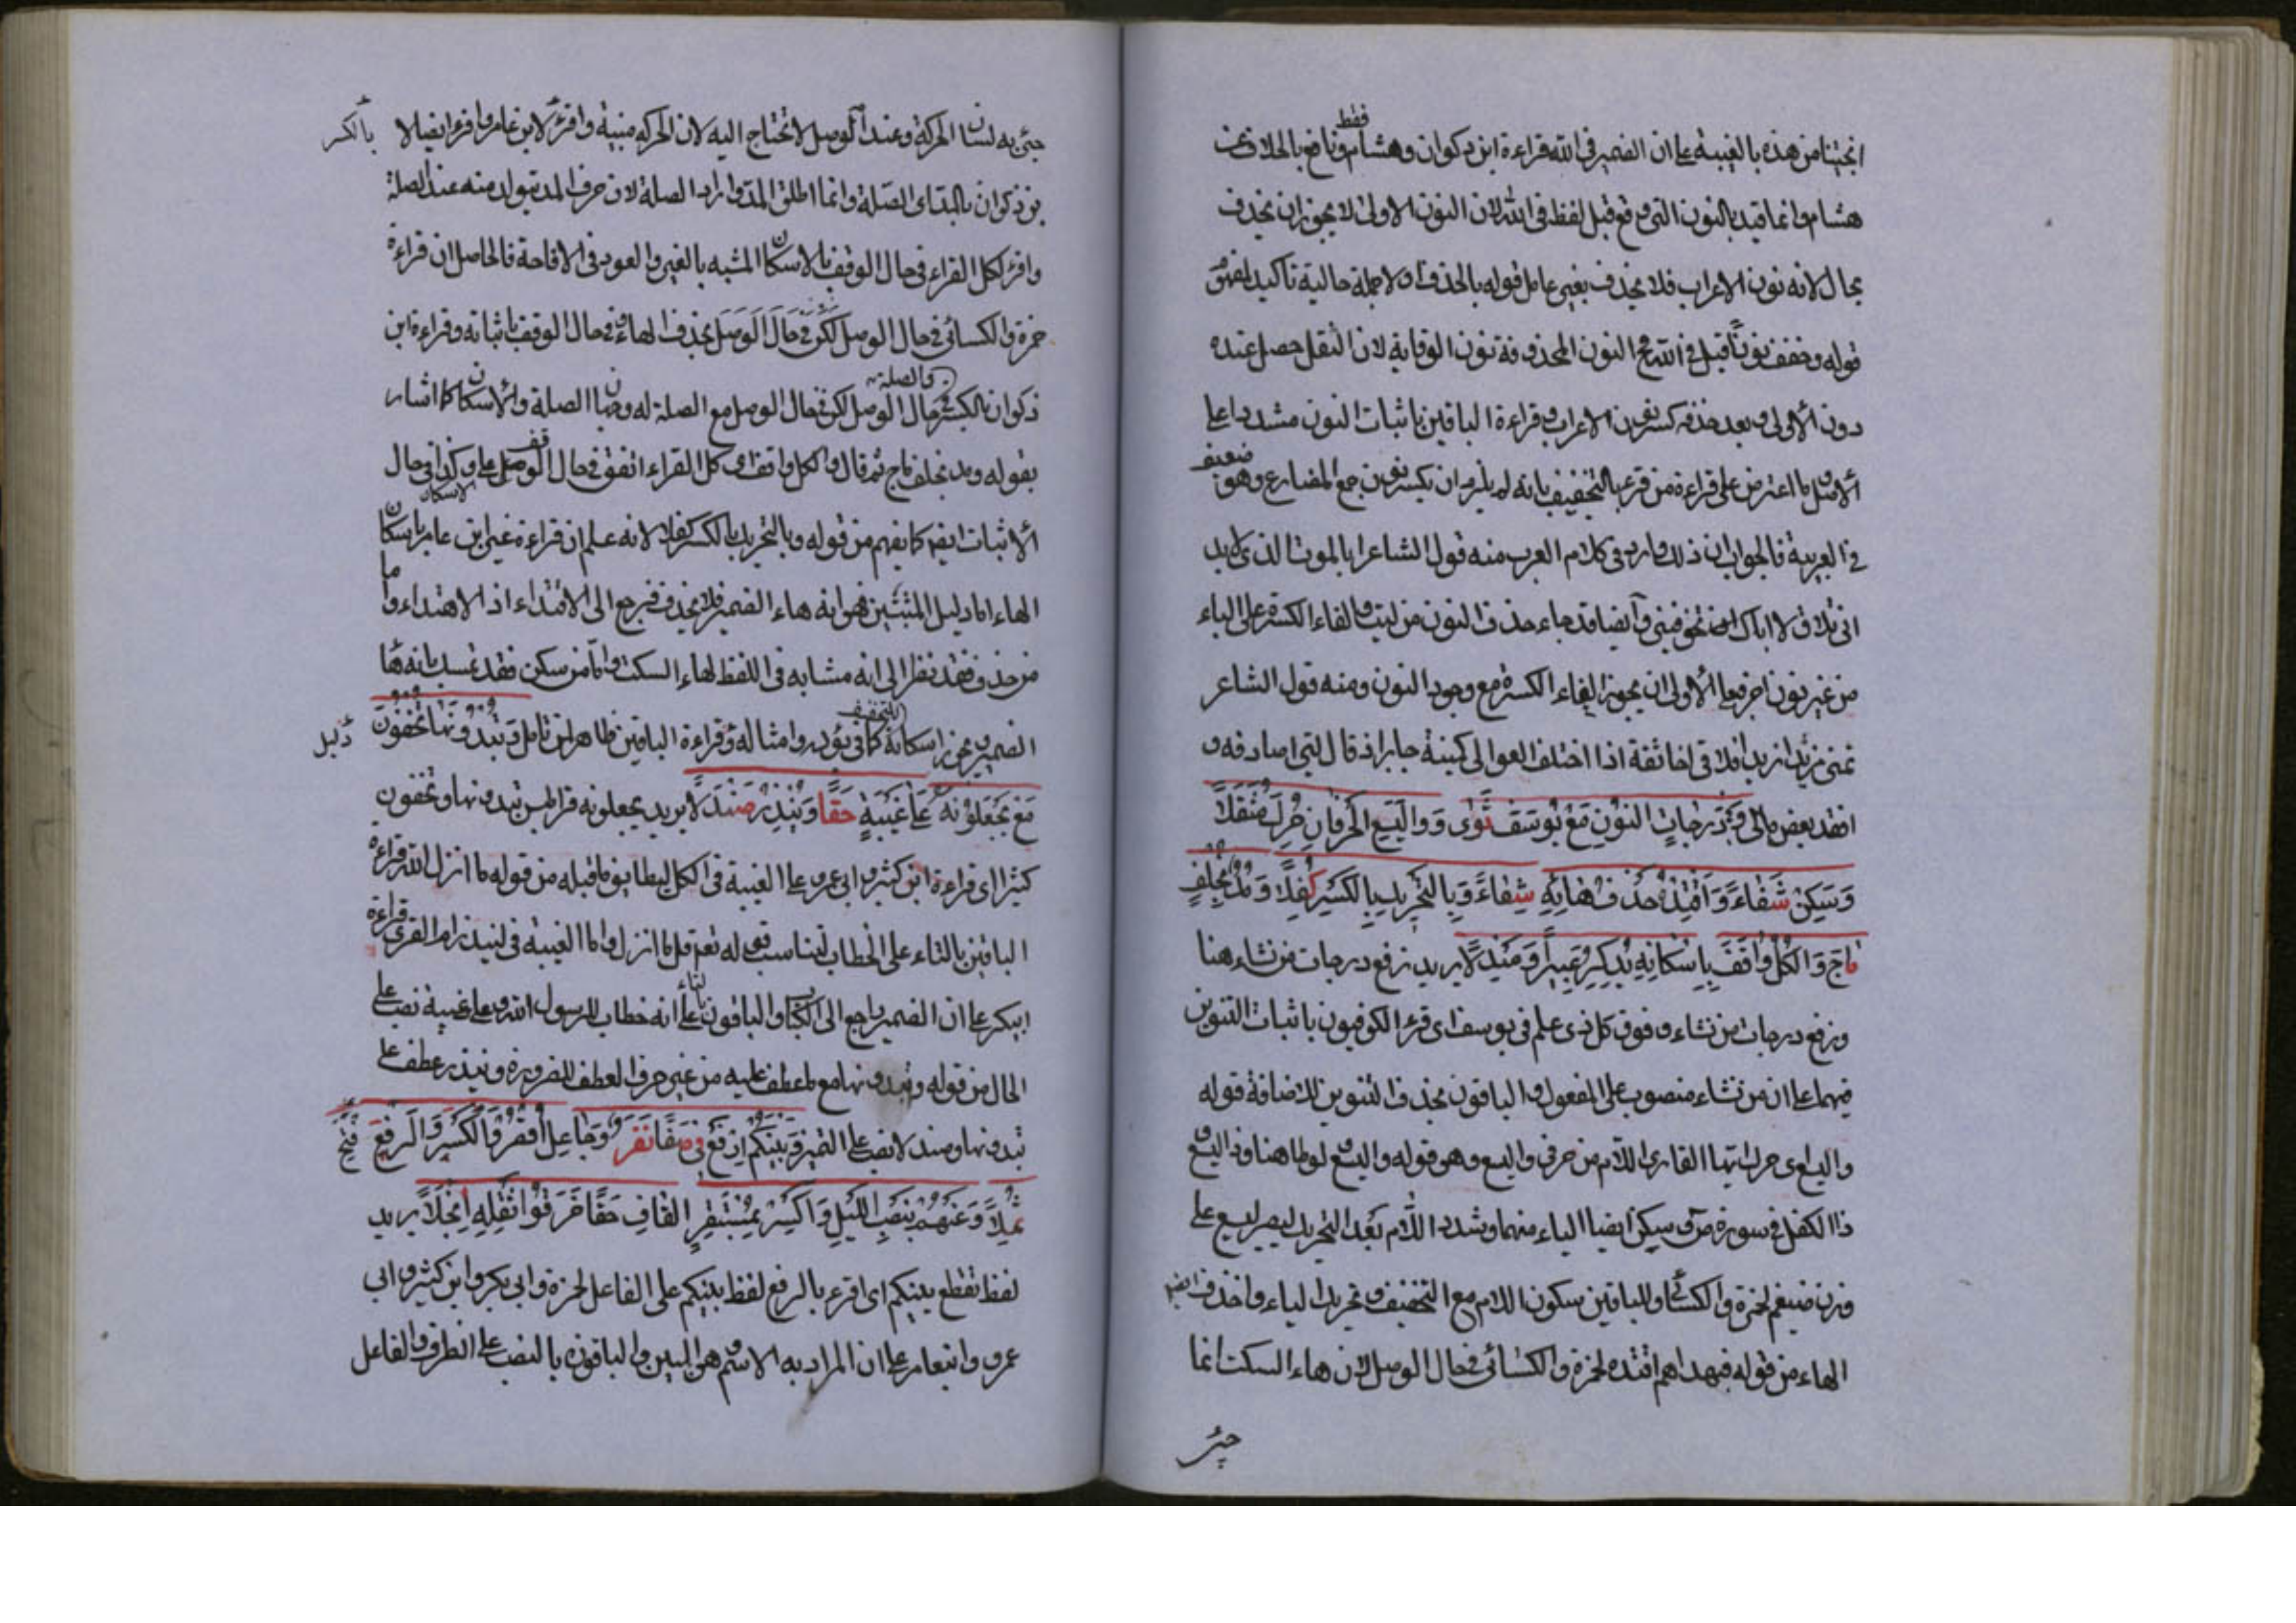 انجيتنا من هذه بالغيبة على ان الضمير في الله قراءة ابن ذكوان وهشام فقط ونافع بالخلاف عن
هشام وانما قيد بالنون التي وقع قبل لفظ في الله لان النون الاولى لا يجوز ان يحذف
بحال لانه نون الاعراب فلا يحذف بغير عامل قوله بالحذف جملة حالية تاكيد لمفهوم
قوله وخفف نونا قبل في الله مع النون المحذوفة نون الوقاية لان الثقل حصل عنده
دون الاولى وبعد حذفه كسر نون الاعراب وقراءة الباقين باثبات النون مشددا على
الاصل ما اعترض على قراءة من قرء بالتخفيف بانه لم يلزم ان يكسر نون جمع المضارع وهو ضعيف
في العربية فالجواب ان ذلك وارد في كلام العرب منه قول الشاعر ابالموت الذي لا بد
اني ملاق لا اباك تخوفيني وايضا قد جاء حذف النون من ليت والقاء الكسرة على الياء
من غير نون اخر فعلى الاولى ان يجوز ابقاء الكسرة مع وجود النون ومنه قول الشاعر
تمنى مزيد زيدا فلاقى اخا ثقة اذا اختلف العوالي كمنية جابر اذ قال ليتي اصادفه و
افقد بعض مالي وَفِي دَرَجَاتِ النُّونِ مَعْ يُوسُفٍ ثَوَى وَوَالَّيْسَعَ الْحَرْفَانِ حَرِّكْ مُثَقِّلًا
وَسَكِّنْ شِفَاءً وَاقْتَدِهْ حَذْفُ هَائِهِ شِفَاءً وَبِالتَّحْرِيكِ بِالْكَسْرِ كُفِّلَا وَمُدَّ بِخُلْفٍ
مَاجَ وَالْكُلُّ وَاقِفٌ بِإِسْكَانِهِ يَذْكُو عَبِيرًا وَمَنْدَلَا يريد نرفع درجات من نشاء هنا
ونرفع درجات من نشاء وفوق كل ذي علم في يوسف اي قرء الكوفيون باثبات التنوين
فيهما على ان من نشاء منصوب على المفعول والباقون بحذف التنوين للاضافة قوله
واليسع اي حرك ايها القاري اللام من حرفي واليسع وهو قوله واليسع ولوطا هنا وذا اليسع
ذا الكفل في سورة ص وسكن ايضا الياء منهما وشدد اللام بعد التحريك ليصير ليسع على
وزن ضيغم لحمزة والكسائي وللباقين سكون اللام مع التخفيف وتحريك الياء واحذف ايضا
الهاء من قوله فبهداهم اقتده لحمزة والكسائي في حال الوصل لان هاء السكت انما
جئ
جئ به لسان الحركة وعند الوصل لا تحتاج اليه لان الحركة مبنية واقرء لابن عامر واقرء ايضا لا بالكسر
بن ذكوان بالمد اي الصلة وانما اطلق المد واراد الصلة لان حرف المد يتولد منه عند الصلة
واقرء لكل القراء في حال الوقف بالاسكان المشبه بالعبير والعود في الافاحة فالحاصل ان قراءة
حمزة والكسائي في حال الوصل بحذف الهاء وفي حال الوقف باثباته وقراءة ابن
ذكوان بالكسر والصلة في حال الوصل لكن في حال الوصل مع الصلة له وجهان الصلة والاسكان كما اشار
بقوله ومد بخلف ماج ثم قال والكل واقف اي كل القراء اتفق في حال الوقف على الاسكان وكذا في حال
الاثبات ايضا كما يفهم من قوله وبالتحريك بالكسر كفلا لانه علم ان قراءة غير ابن عامر باسكان
الهاء اما دليل المثبتين فهو انه هاء الضمير فلا يحذف فيرجع الى الاقتداء اذ الاهتداء واما
من حذف فقد نظر الى انه مشابه في اللفظ لهاء السكت واما من سكن فقد تمسك بانه هاء
الضمير ويجوز اسكانه للتخفيف كما في يؤده وامثاله وقراءة الباقين ظاهر لمن تامل وَتُبْدُونَهَا تُخْفُونَ دليل
مَعْ تَجْعَلُونَهُ عَلَى غَيْبِهِ حَقًّا وَيُنْذِرَ صَنْدَلَا يريد يجعلونه قراطيس يبدونها ويخفون
كثيرا اي قراءة ابن كثير وابي عمرو على الغيبة في الكل ليطابق ما قبله من قوله ما انزل الله وقراءة
الباقين بالتاء على الخطاب ليناسب قوله تع قل ما انزل واما الغيبة في لينذر ام القرى قراءة
ابي بكر على ان الضمير راجع الى الكتاب والباقون بالتاء على انه خطاب للرسول الله وعلى غيبة نصب على
الحال من قوله وتبدونها مع ما عطف عليه من غير حرف العطف للضرورة وينذر عطف على
تبدونها وصندلا نصب على التميز وَبَيْنَكُمُ ارْفَعْ فِي صَفَا نَفَرٍ وَجَاعِلُ اقْصُرْ وَفَتْحُ الْكَسْرِ وَالرَّفْعِ
ثُمِّلَا وَعَنْهُمْ بِنَصْبِ اللَّيْلِ وَاكْسِرْ بِمُسْتَقَرٍّ الْقَافَ حَقًّا خَرَّقُوا ثِقْلُهُ انْجَلَا يريد
لفظ تقطع بينكم اي اقرء بالرفع لفظ بينكم على الفاعل لحمزة وابي بكر وابن كثير وابي
عمرو وابن عامر على ان المراد به الاسم وهو البين والباقون بالنصب على الظرف والفاعل